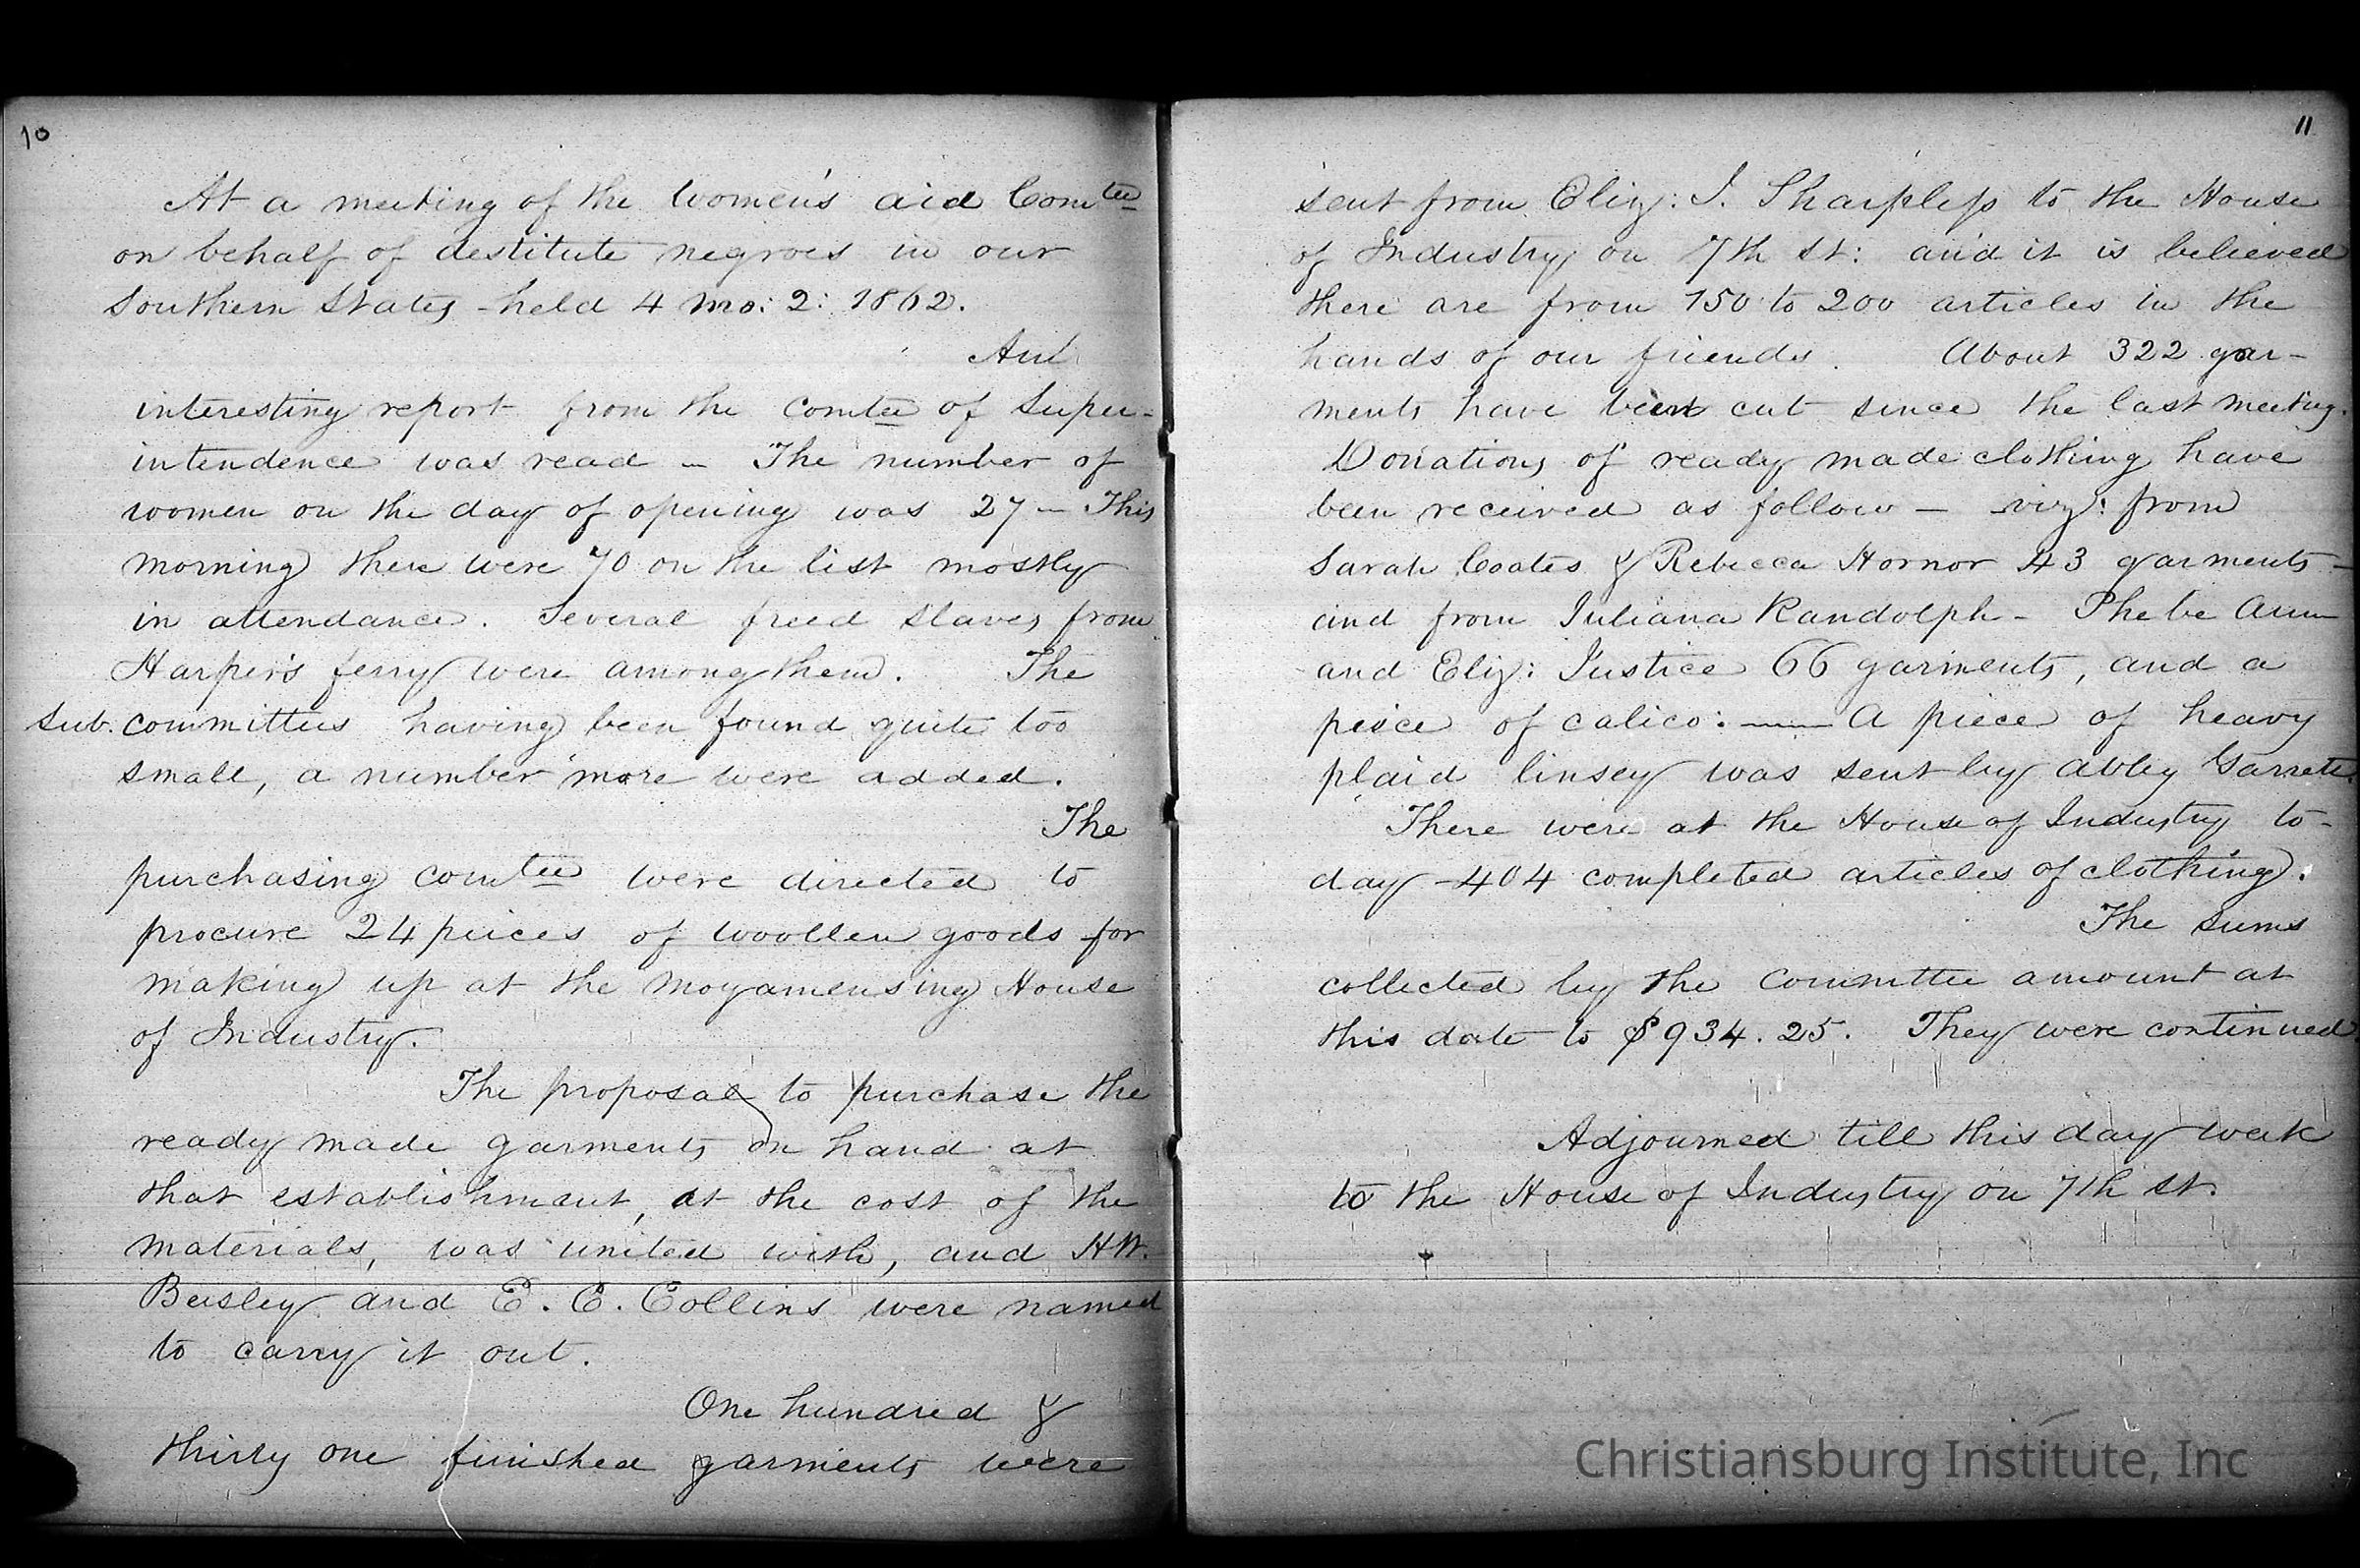 10
At a meeting of the Women's aid Comtee
on behalf of destitute negroes in our
Southern States - held 4 mo: 2: 1862.
An
interesting report from the comtee of Super-
intendence was read - The number of
women on the day of opening was 27 - This
morning there were 70 on the list mostly
in attendance. Several freed slaves from
Harper's ferry were among them. The
sub. committees having been found quite too
small, a number more were added.
The
purchasing comtee were directed to
procure 24 pieces of woollen goods for
making up at the Moyamensing House
of Industry.
The proposal to purchase the
ready made garments on hand at
that establishment, at the cost of the
materials, was united with, and H W.
Beesley and E. C. Collins were named
to carry it out.
One hundred &
thirty one finished garments were
11
sent from Eliz: J. Sharpless to the House
of Industry on 7th St: and it is believed
there are from 150 to 200 articles in the
hands of our friends. About 322 gar-
ments have been cut since the last meeting.
Donations of ready made clothing have
been received as follow - viz: from
Sarah Coates & Rebecca Hornor 43 garments -
and from Juliana Randolph - Phebe Ann
and Eliz: Justice 66 garments, and a
peice of calico: — A piece of heavy
plaid linsey was sent by Abby Garrett.
There were at the House of Industry to-
day - 404 completed articles of clothing.
The sums
collected by the Committee amount at
this date to $934.25. They were continued.
Adjourned till this day week
to the House of Industry on 7th St.
Christiansburg Institute, Inc